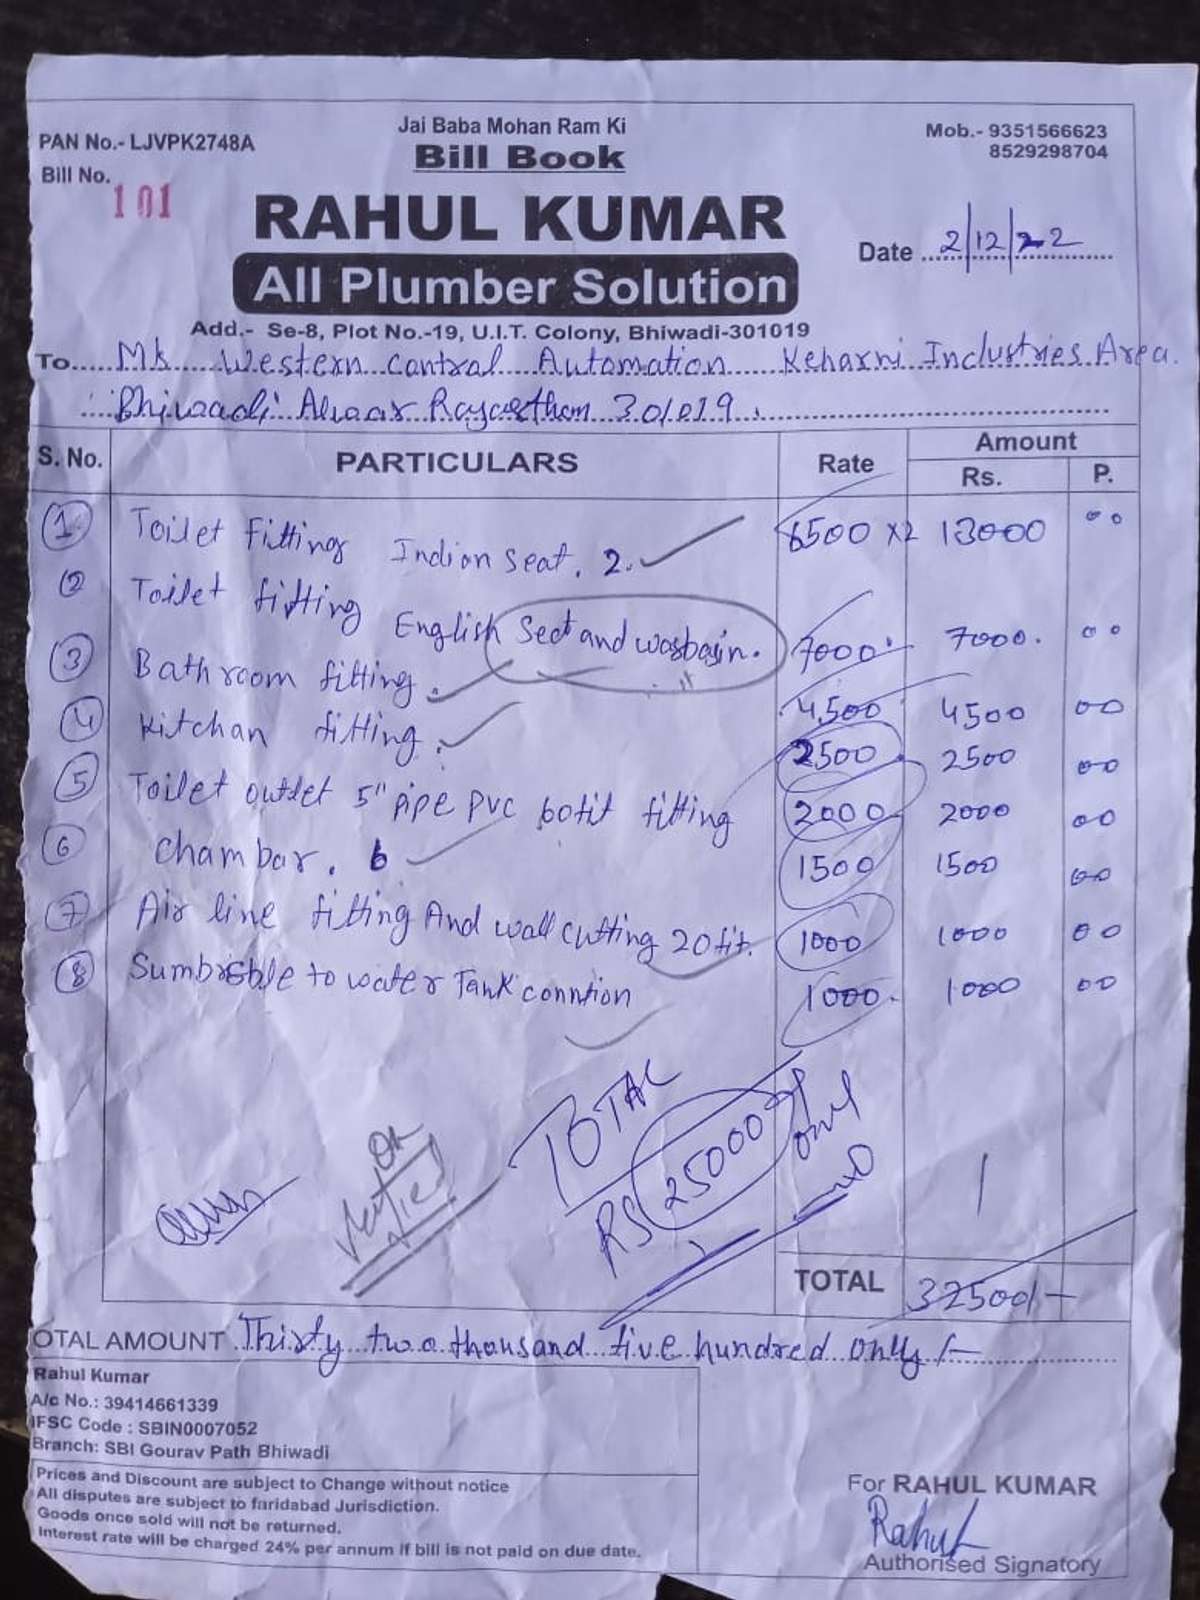 Jai Baba Mohan Ram Ki
PAN No.- LJVPK2748A
Bill Book
Mob.- 9351566623
8529298704
Bill No. 101
RAHUL KUMAR
Date 2/12/22
All Plumber Solution
Add.- Se-8, Plot No.-19, U.I.T. Colony, Bhiwadi-301019
To M/s Western Contral Automation Keharni Industries Area
Bhiwadi Alwar Rajasthan 301019.
S. No. PARTICULARS Rate Amount
Rs. P.
1 Toilet fitting Indian seat. 2. 6500 x2 13000 00
2 Toilet fitting English Seat and wasbasin. 7000. 7000. 00
3 Bathroom fitting. 4500 4500 00
4 Kitchan fitting. 2500 2500 00
5 Toilet outlet 5" pipe PVC 60fit fitting 2000 2000 00
6 Chambar. 6 1500 1500 00
7 Air line fitting And wall cutting 20fit. 1000 1000 00
8 to water Tank conntion 1000. 1000 00
TOTAL
RS 25000 only
Verified
TOTAL 32500/-
OTAL AMOUNT Thirty two thousand five hundred only/-
Rahul Kumar
A/c No.: 39414661339
IFSC Code : SBIN0007052
Branch: SBI Gourav Path Bhiwadi
Prices and Discount are subject to Change without notice
All disputes are subject to faridabad Jurisdiction.
Goods once sold will not be returned.
Interest rate will be charged 24% per annum if bill is not paid on due date.
For RAHUL KUMAR
Rahul
Authorised Signatory